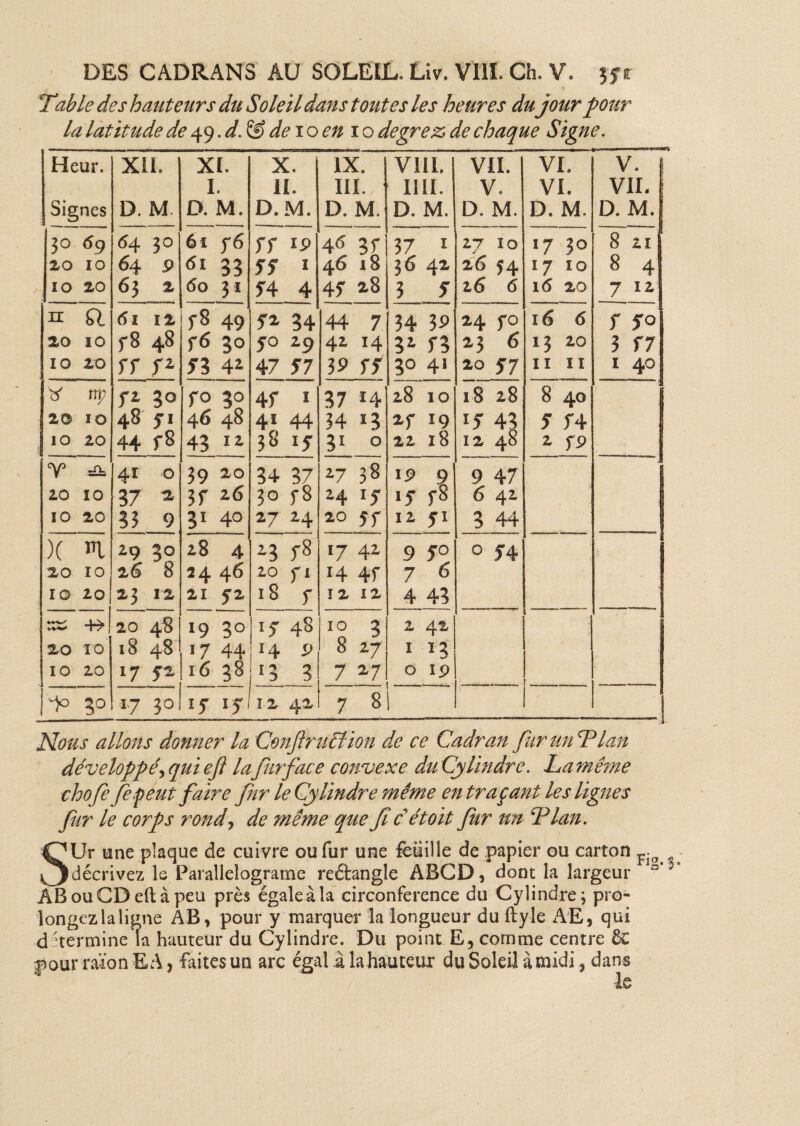 DES CADRANS AU SOLEIL. Liv. VIII. Ch. V. 351
Table des hauteurs du Soleil dans toutes les heures du jour pour
la latitude de 49. d. & de 10 en 10 degrez de chaque Signe.
Heur. XII. XI. X. IX. VIII. VII. VI. V.
I. II. III. IIII. V. VI. VII.
Signes D. M. D. M. D. M. D. M. D. M. D. M. D. M. D. M.
30 ♋ 64 30 61 56 55 19 46 35 37 1 27 10 17 30 8 21
20 10 64 9 61 33 55 1 46 18 36 42 26 54 17 10 8 4
10 20 63 2 60 31 54 4 45 28 3 5 26 6 16 20 7 12
♊ ♌ 61 12 58 49 52 34 44 7 34 39 24 50 16 6 5 50
20 10 58 48 56 30 50 29 42 14 32 53 23 6 13 20 3 57
10 20 55 52 53 42 47 57 39 55 30 41 20 57 11 11 1 40
♉ ♍ 52 30 50 30 45 1 37 14 28 10 18 28 8 40
20 10 48 51 46 48 41 44 34 13 25 19 15 43 5 54
10 20 44 58 43 12 38 15 31 0 22 18 12 48 2 59
♈ ♎ 41 0 39 20 34 37 27 38 19 9 9 47
20 10 37 2 35 26 30 58 24 15 15 58 6 42
10 20 33 9 31 40 27 24 20 55 12 51 3 44
♓ ♏ 29 30 28 4 23 58 17 42 9 50 0 54
20 10 26 8 24 46 20 51 14 45 7 6
10 20 23 12 21 52 18 5 12 12 4 43
♒ ♐ 20 48 19 30 15 48 10 3 2 42
20 10 18 48 17 44 14 9 8 27 1 13
10 20 17 52 16 38 13 3 7 27 0 19
♑ 30 17 30 15 15 12 42 7 8
Nous allons donner la Conſtruction de ce Cadran ſur un Plan
développé, qui eſt la ſurface convexe du Cylindre. La même
choſe ſe peut faire ſur le Cylindre même en traçant les lignes
ſur le corps rond, de même que ſi c'étoit ſur un Plan.
SUr une plaque de cuivre ou ſur une feüille de papier ou carton Fig. 3.
décrivez le Parallelograme rectangle ABCD, dont la largeur
AB ou CD eſt à peu près égale à la circonference du Cylindre; pro-
longez la ligne AB, pour y marquer la longueur du ſtyle AE, qui
détermine la hauteur du Cylindre. Du point E, comme centre &
pour raïon EA, faites un arc égal à la hauteur du Soleil à midi, dans
le